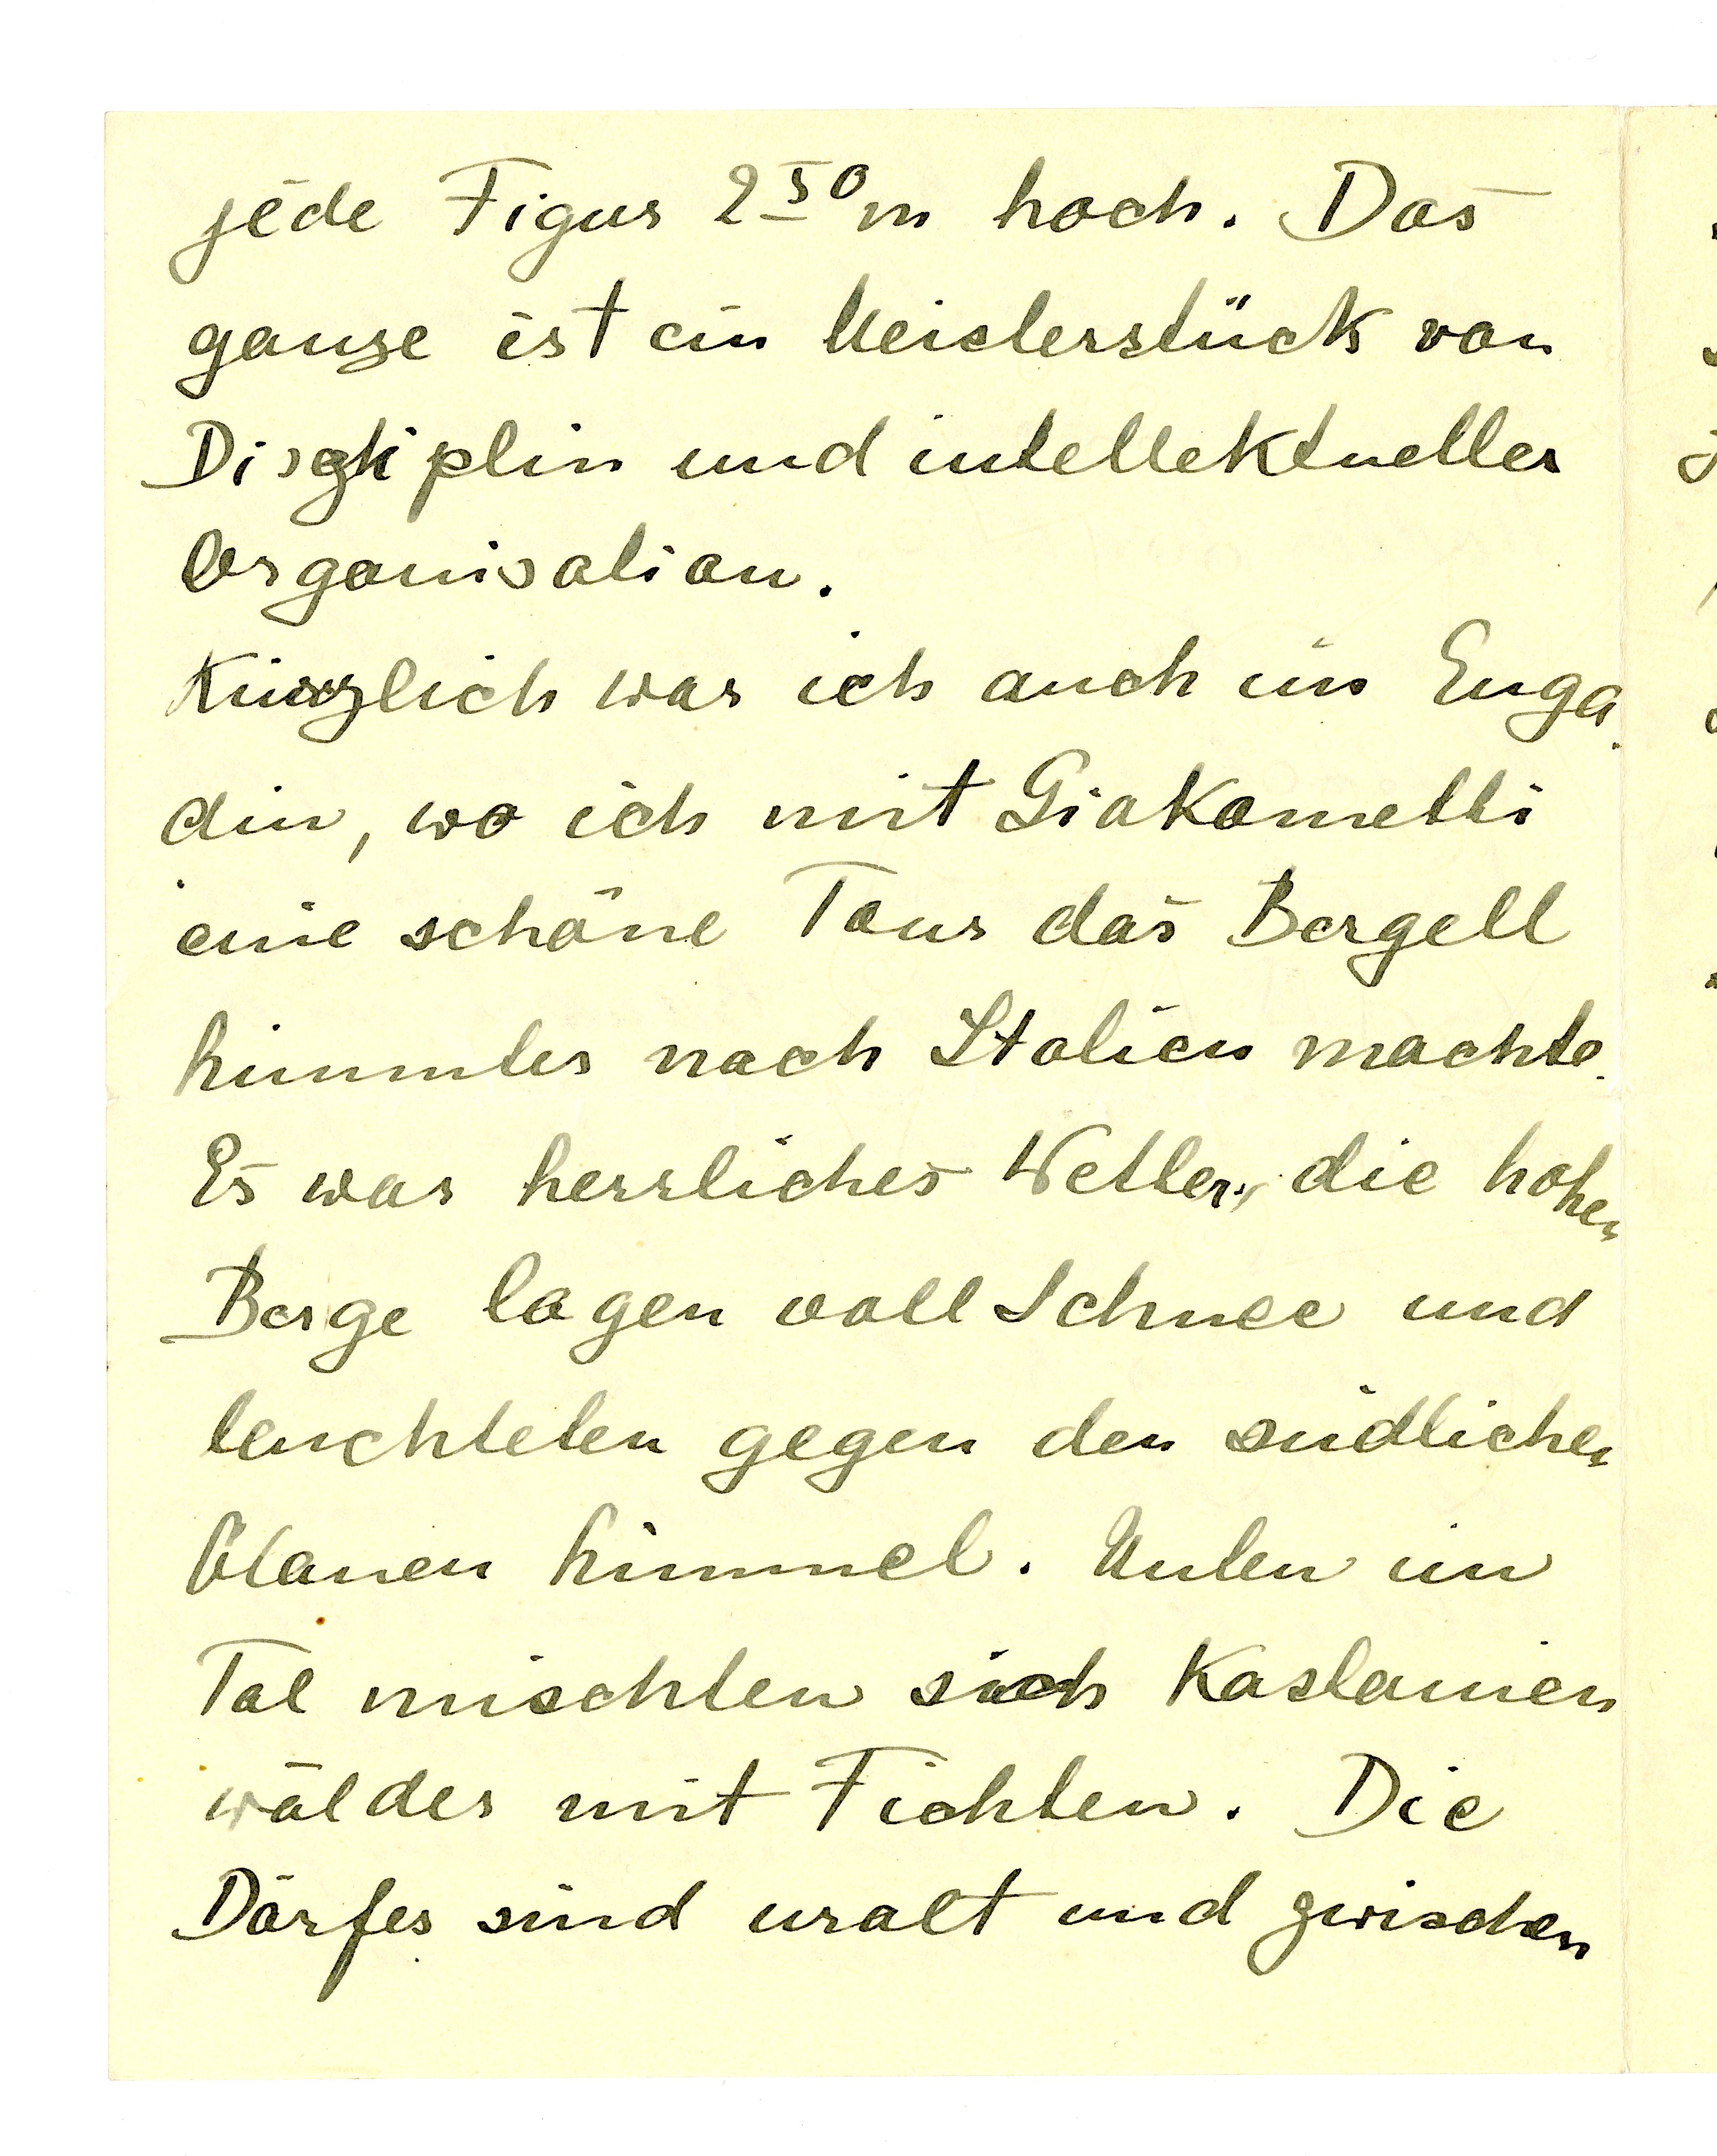 jede Figur 2 50 m hoch. Das
ganze ist ein Meisterstück von
Disziplin und intellektueller
Organisation.
Kürzlich war ich auch im Enga
din, wo ich mit Giakometti
eine schöne Tour das Bergell
hinunter nach Italien machte.
Es war herrliches Wetter, die hohen
Berge lagen voll Schnee und
leuchteten gegen den südlichen
blauen Himmel. Unten im
Tal mischten sich Kastanien
wälder mit Fichten. Die
Dörfer sind uralt und zwischen